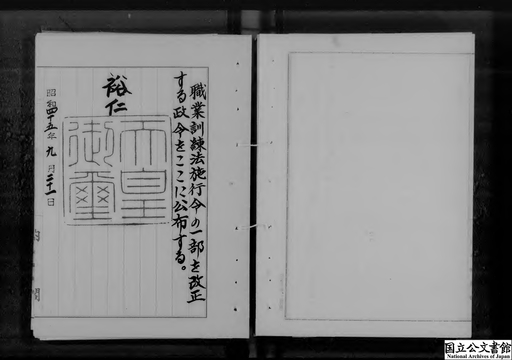 職業訓練法施行令の一部を改正
する政令をここに公布する。
裕仁
天皇
御璽
昭和四十五年九月二十一日
国立公文書館
National Archives of Japan